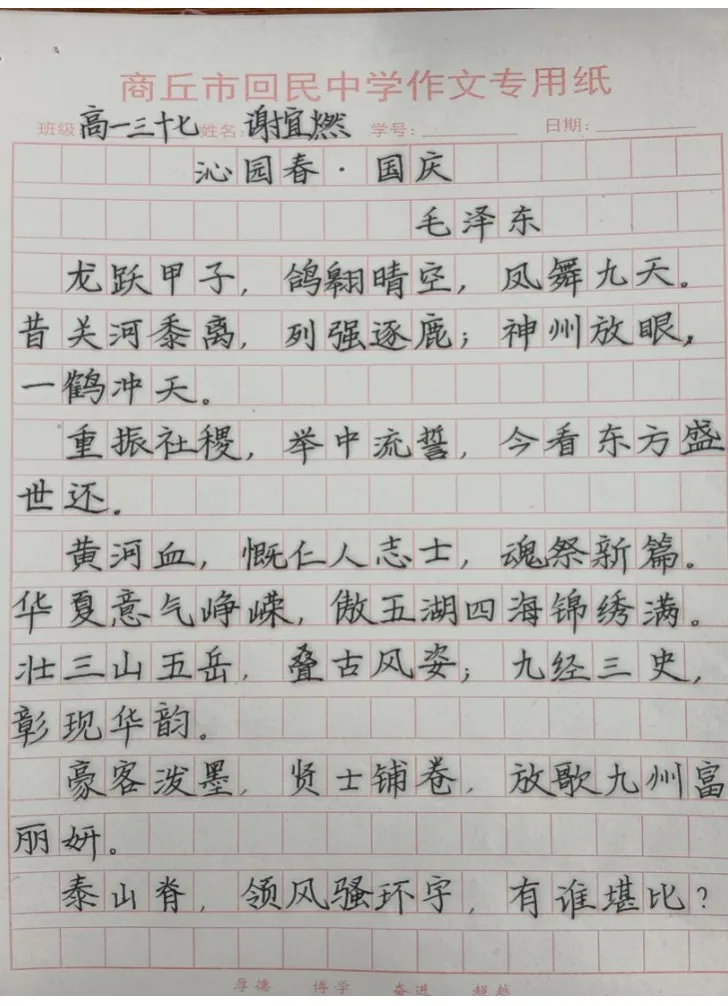 商丘市回民中学作文专用纸
班级 高一三十七 姓名: 谢宜燃 学号: 日期:
沁园春·国庆
毛泽东
龙跃甲子，鸽翱晴空，凤舞九天。
昔关河黍离，列强逐鹿；神州放眼，
一鹤冲天。
重振社稷，举中流誓，今看东方盛
世还。
黄河血，慨仁人志士，魂祭新篇。
华夏意气峥嵘，傲五湖四海锦绣满。
壮三山五岳，叠古风姿；九经三史，
彰现华韵。
豪客泼墨，贤士铺卷，放歌九州富
丽妍。
泰山脊，领风骚环宇，有谁堪比？
厚德 博学 奋进 超越